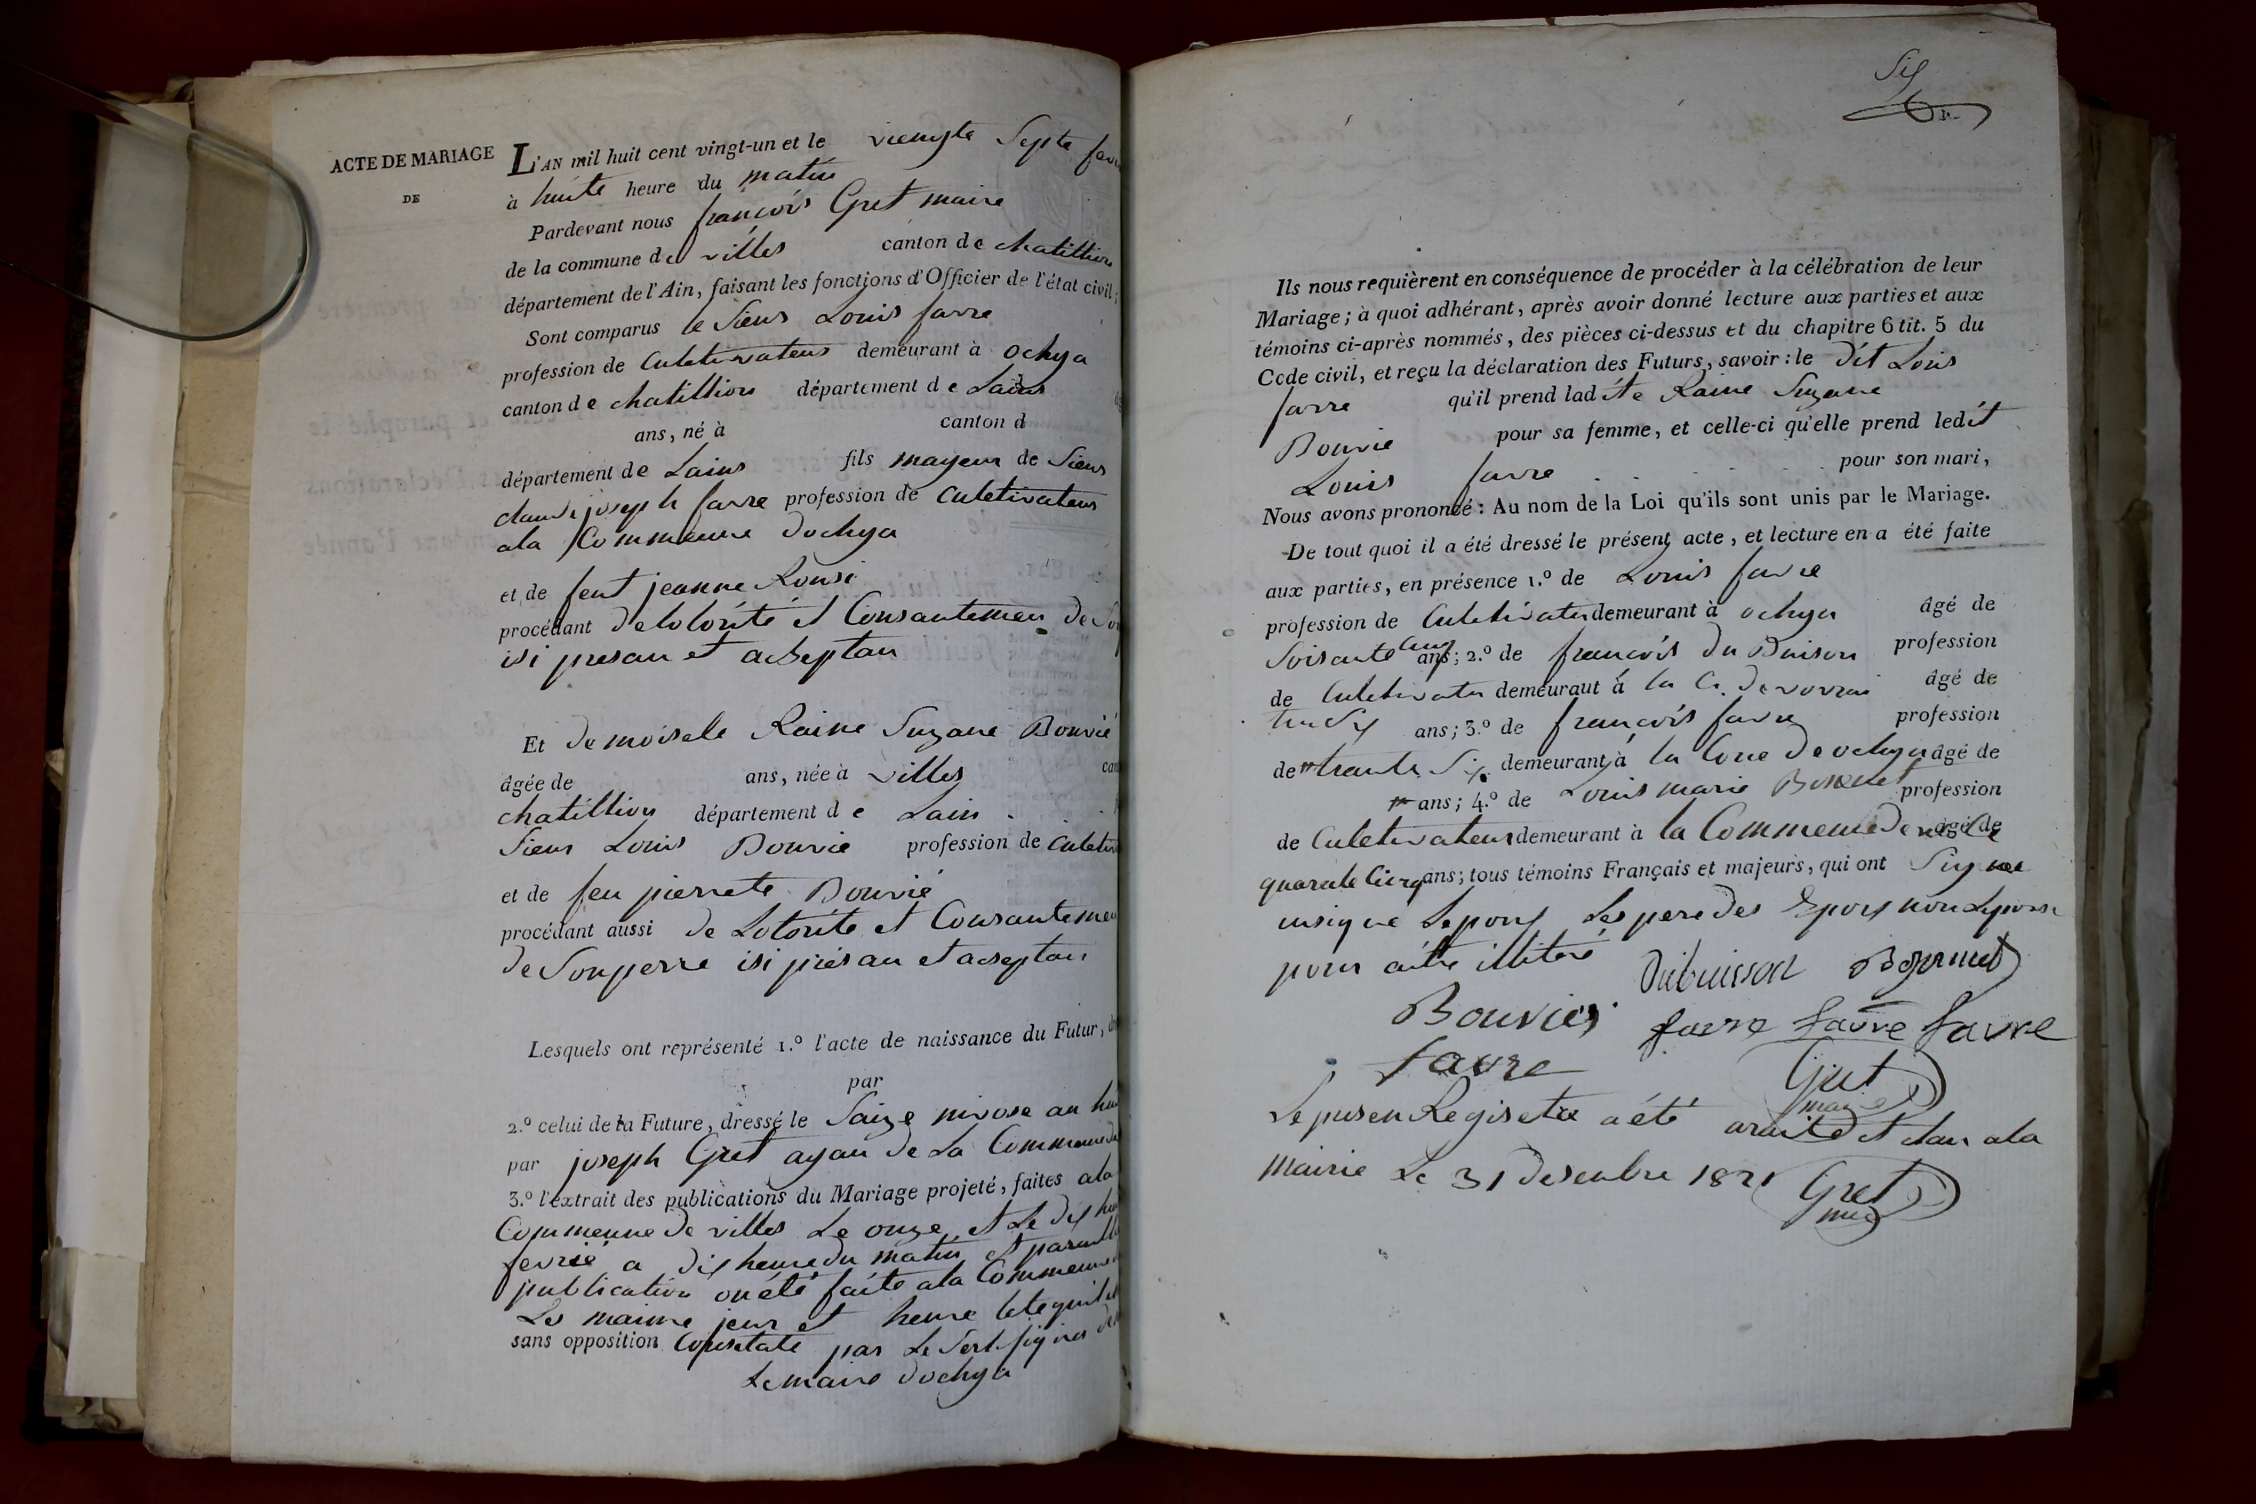 ACTE DE MARIAGE
DE
L'AN mil huit cent vingt-un et le viengte Septe
à huite heure du matin
Pardevant nous françois Gret maire
de la commune de villes canton de chatillion
département de l'Ain, faisant les fonctions d'Officier de l'état civil;
Sont comparus le Sieur Louis favre
profession de Culetivateur demeurant à ochya
canton de chatillion département de Lain
ans, né à canton d
département de Lains fils mayeur de Sieur
claude joseph favre profession de Culetivateur
ala Commeune dochya
et de feut jeanne Rousi
procédant de lotorité et Consantemen de
isi presan et acseptan
Et demoisele Raine Suzane Bouvié
âgée de ans, née à villes
chatillion département de Lain
Sieur Louis Bouvie profession de
et de feu pierrete Bouvié
procédant aussi de Lotorite et Consantemen
de Son perre isi présan et acseptan
Lesquels ont représenté 1.º l'acte de naissance du Futur,
par
2.º celui de la Future, dressé le Saize nivose an
par joseph Gret agan de La Commeune
3.º l'extrait des publications du Mariage projeté, faites ala
Commeune de villes Le onze et Le dis
fevrié a dis heure du matin et
publication on été faite ala Commeune
Les maime jeur et heure
sans opposition par Le
Le maire dochya
Six
F.
Ils nous requièrent en conséquence de procéder à la célébration de leur
Mariage; à quoi adhérant, après avoir donné lecture aux parties et aux
témoins ci-après nommés, des pièces ci-dessus et du chapitre 6 tit. 5 du
Code civil, et reçu la déclaration des Futurs, savoir: le dit Louis
favre qu'il prend ladite Raine Suzane
Bouvie pour sa femme, et celle-ci qu'elle prend ledit
Louis favre pour son mari,
Nous avons prononcé: Au nom de la Loi qu'ils sont unis par le Mariage.
De tout quoi il a été dressé le présent acte, et lecture en a été faite
aux parties, en présence 1.º de Louis favre
profession de Culetivateur demeurant à ochya âgé de
Soisante ans; 2.º de francois du Buison profession
de Culetivateur demeurant à la C. de âgé de
ans; 3.º de francois favre profession
de trante Six demeurant à la de ochya âgé de
ans; 4.º de Louis marie profession
de Culetivateur demeurant à la Commeune de âgé de
quarente Cinq ans; tous témoins Français et majeurs, qui ont Signee
Les pere des Epous non Lepouse
pour aitre illitere
Dubuisson
Bouvier favre favre favre
favre Gret
maire
Le presen Registre a été araité et clau ala
Mairie Le 31 Desenbre 1821 Gret